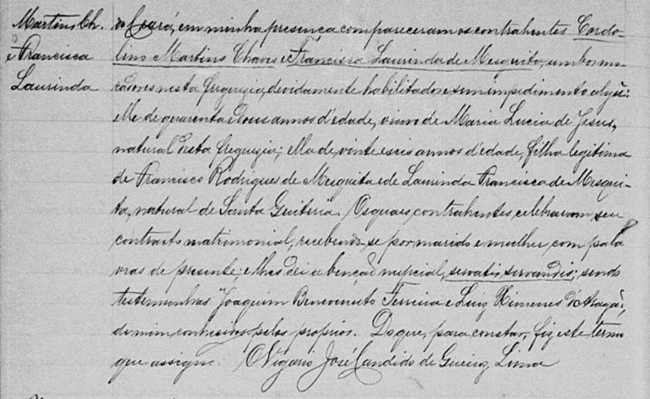 Martins Ch.
e Francisca
Laurinda
do Ceará, em minha presença compareceram os contrahentes Cordo-
lino Martins Chaves e Francisca Laurinda de Mesquita, ambos mo-
radores nesta freguezia, devidamente habilitados e sem impedimento algũ:
Elle de quarenta e dous annos d'edade, viuvo de Maria Lucia de Jesus,
natural desta freguezia; ella de vinte e seis annos d'edade, filha legitima
de Francisco Rodrigues de Mesquita e de Laurinda Francisca de Mesqui-
ta, natural de Santa Quiteria. Os quaes contrahentes, celebraram seu
contracto matrimonial, recebendo-se por marido e mulher, com pala
vras de presente; e lhes dei a benção nupcial, servatis, servandis; sendo
testemunhas Joaquim Benevinuto Ferreira e Luiz Ximenes d'Aragão,
de mim conhecidos pelos proprios. Do que, para constar, fiz este termo
que assigno. O Vigario José Candido de Queiroz Lima